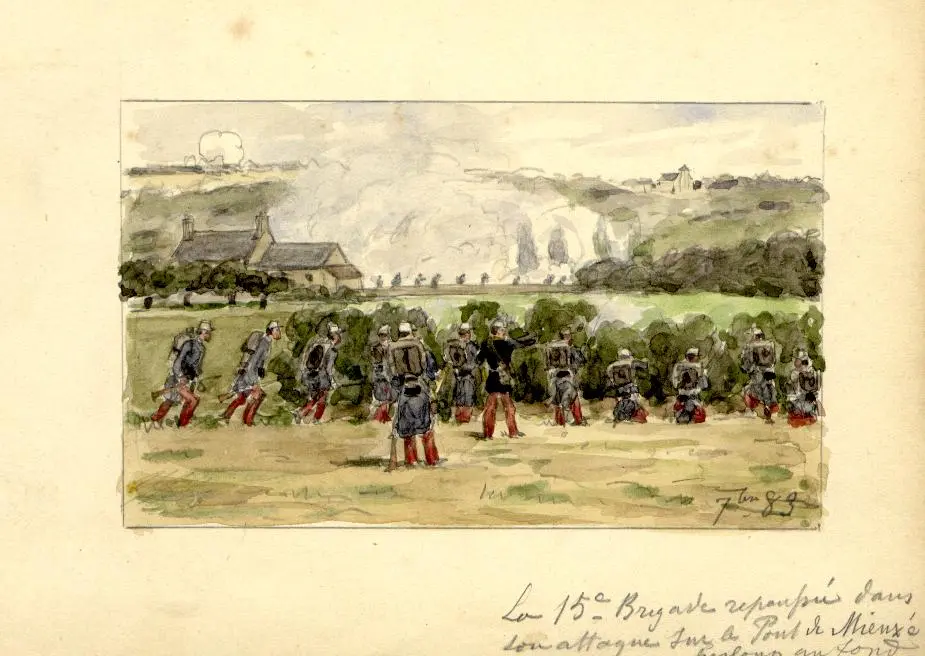 7bre 83
La 15e Brigade repoussée dans
son attaque sur le Pont de Mienxé
au fond